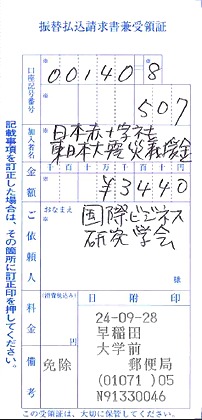 振替払込請求書兼受領証
口座記号番号
00140 8
507
加入者名
日本赤十字社
東日本大震災義援金
金額
千 百 十 万 千 百 十 円
¥3440
ご依頼人
おなまえ
国際ビジネス
研究学会
様
料金
(消費税込み)
円
日附印
24-09-28
早稲田
大学前
郵便局
(01071)05
N91330046
備考
免除
記載事項を訂正した場合は、その箇所に訂正印を押してください。
この受領証は、大切に保管してください。